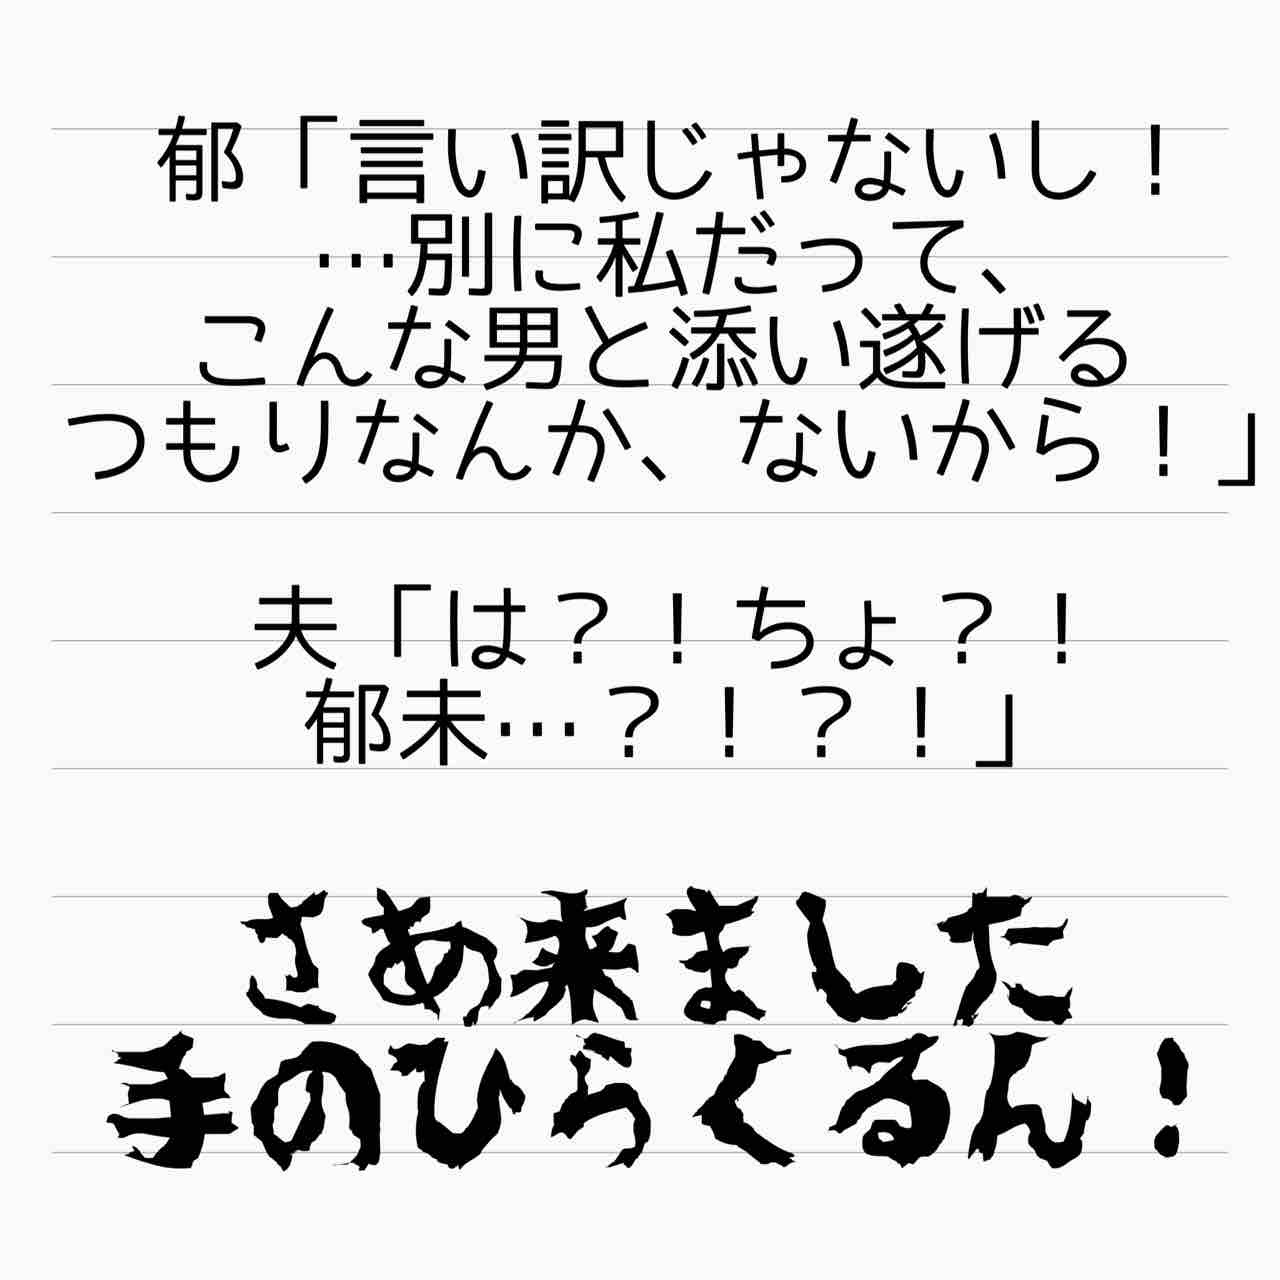 郁「言い訳じゃないし！
…別に私だって、
こんな男と添い遂げる
つもりなんか、ないから！」
夫「は？！ちょ？！
郁未…？！？！」
さあ来ました
手のひらくるん！